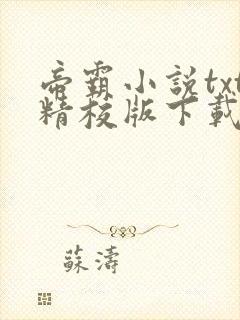 帝霸小説txt
精校版下載
蘇濤